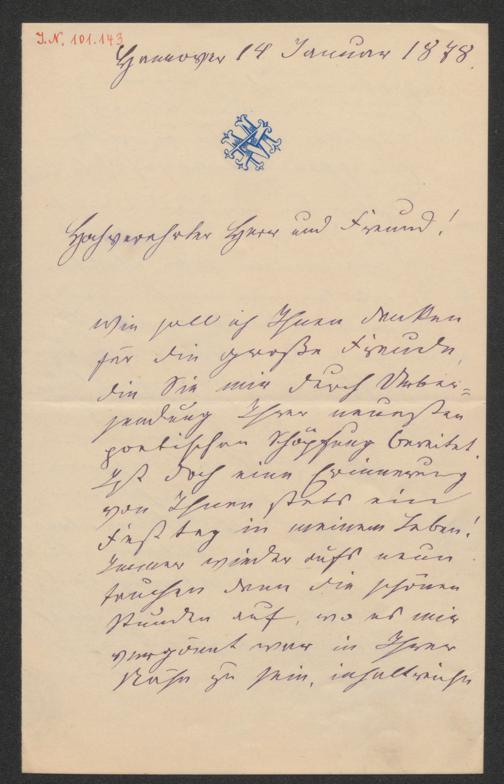 J.N. 101.143
Hannover 14 Januar 1878.
Hochverehrter Herr und Freund!
Wie soll ich Ihnen danken
für die große Freude,
die Sie mir durch Ueber=
sendung Ihrer neuesten
poetischen Schöpfung bereitet.
Ist doch eine Erinnerung
von Ihnen stets ein
Festtag in meinem Leben!
Immer wieder aufs neue
tauchen dann die schönen
Stunden auf, wo es mir
vergönnt war in Ihrer
Nähe zu sein, inhaltreiche